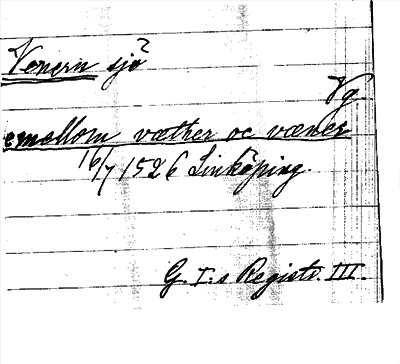 Venern sjö
Vg.
emellom væther oc væner
16/7 1526 Linköping.
G. I:s Registr. III.